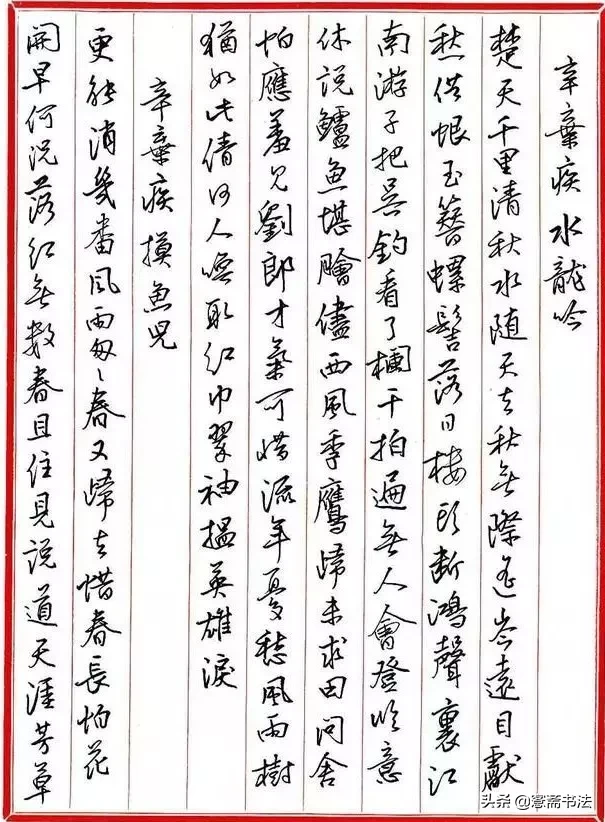 辛棄疾水龍吟
楚天千里清秋水随天去秋無際遙岑遠目獻
愁供恨玉簪螺髻落日樓頭斷鴻聲裏江
南游子把吴鈎看了欄干拍遍無人會登臨意
休説鱸魚堪膾儘西風季鷹歸未求田問舍
怕應羞見劉郎才氣可惜流年憂愁風雨樹
猶如此倩何人喚取紅巾翠袖搵英雄淚
辛棄疾摸魚兒
更能消幾番風雨匆々春又歸去惜春長怕花
開早何況落紅無數春且住見説道天涯芳草
头条 @斋书法